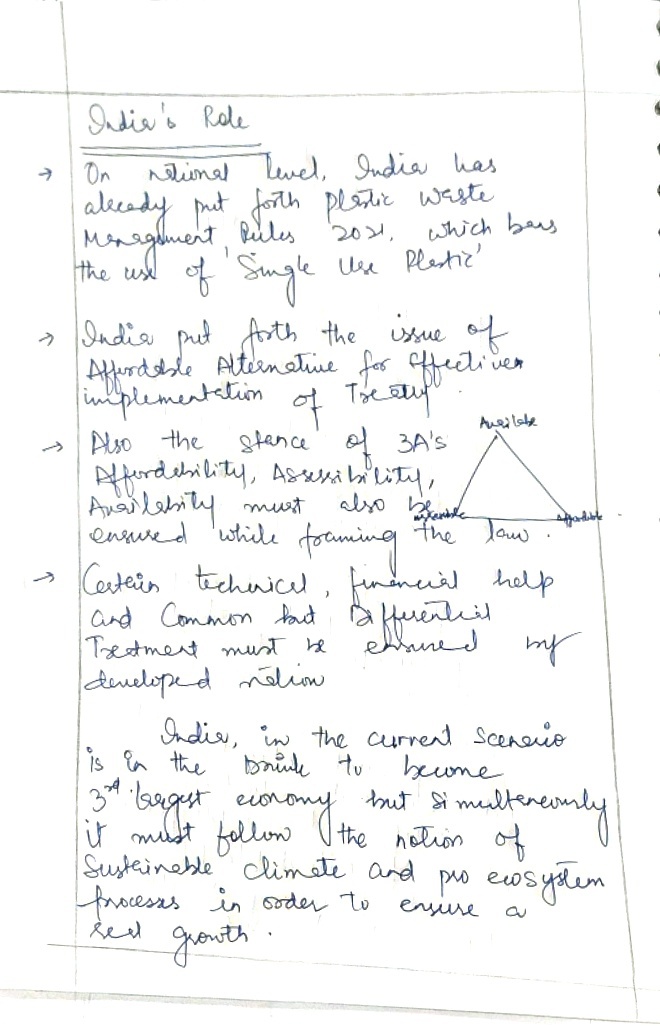 India's Role
→ On national level, India has
already put forth plastic waste
Management Rules 2021, which bans
the use of 'Single Use Plastic'
→ India put forth the issue of
Affordable Alternative for effective
implementation of Treaty.
→ Also the stance of 3A's
Available
Affordability, Assessibility,
Availability must also be
Affordable
ensured while framing the law.
→ Certain technical, financial help
and Common but Differential
Treatment must be ensured by
developed nation
India, in the current scenario
is in the brink to become
3rd largest economy but simultaneously
it must follow the notion of
Sustainable climate and pro ecosystem
processes in order to ensure a
real growth.